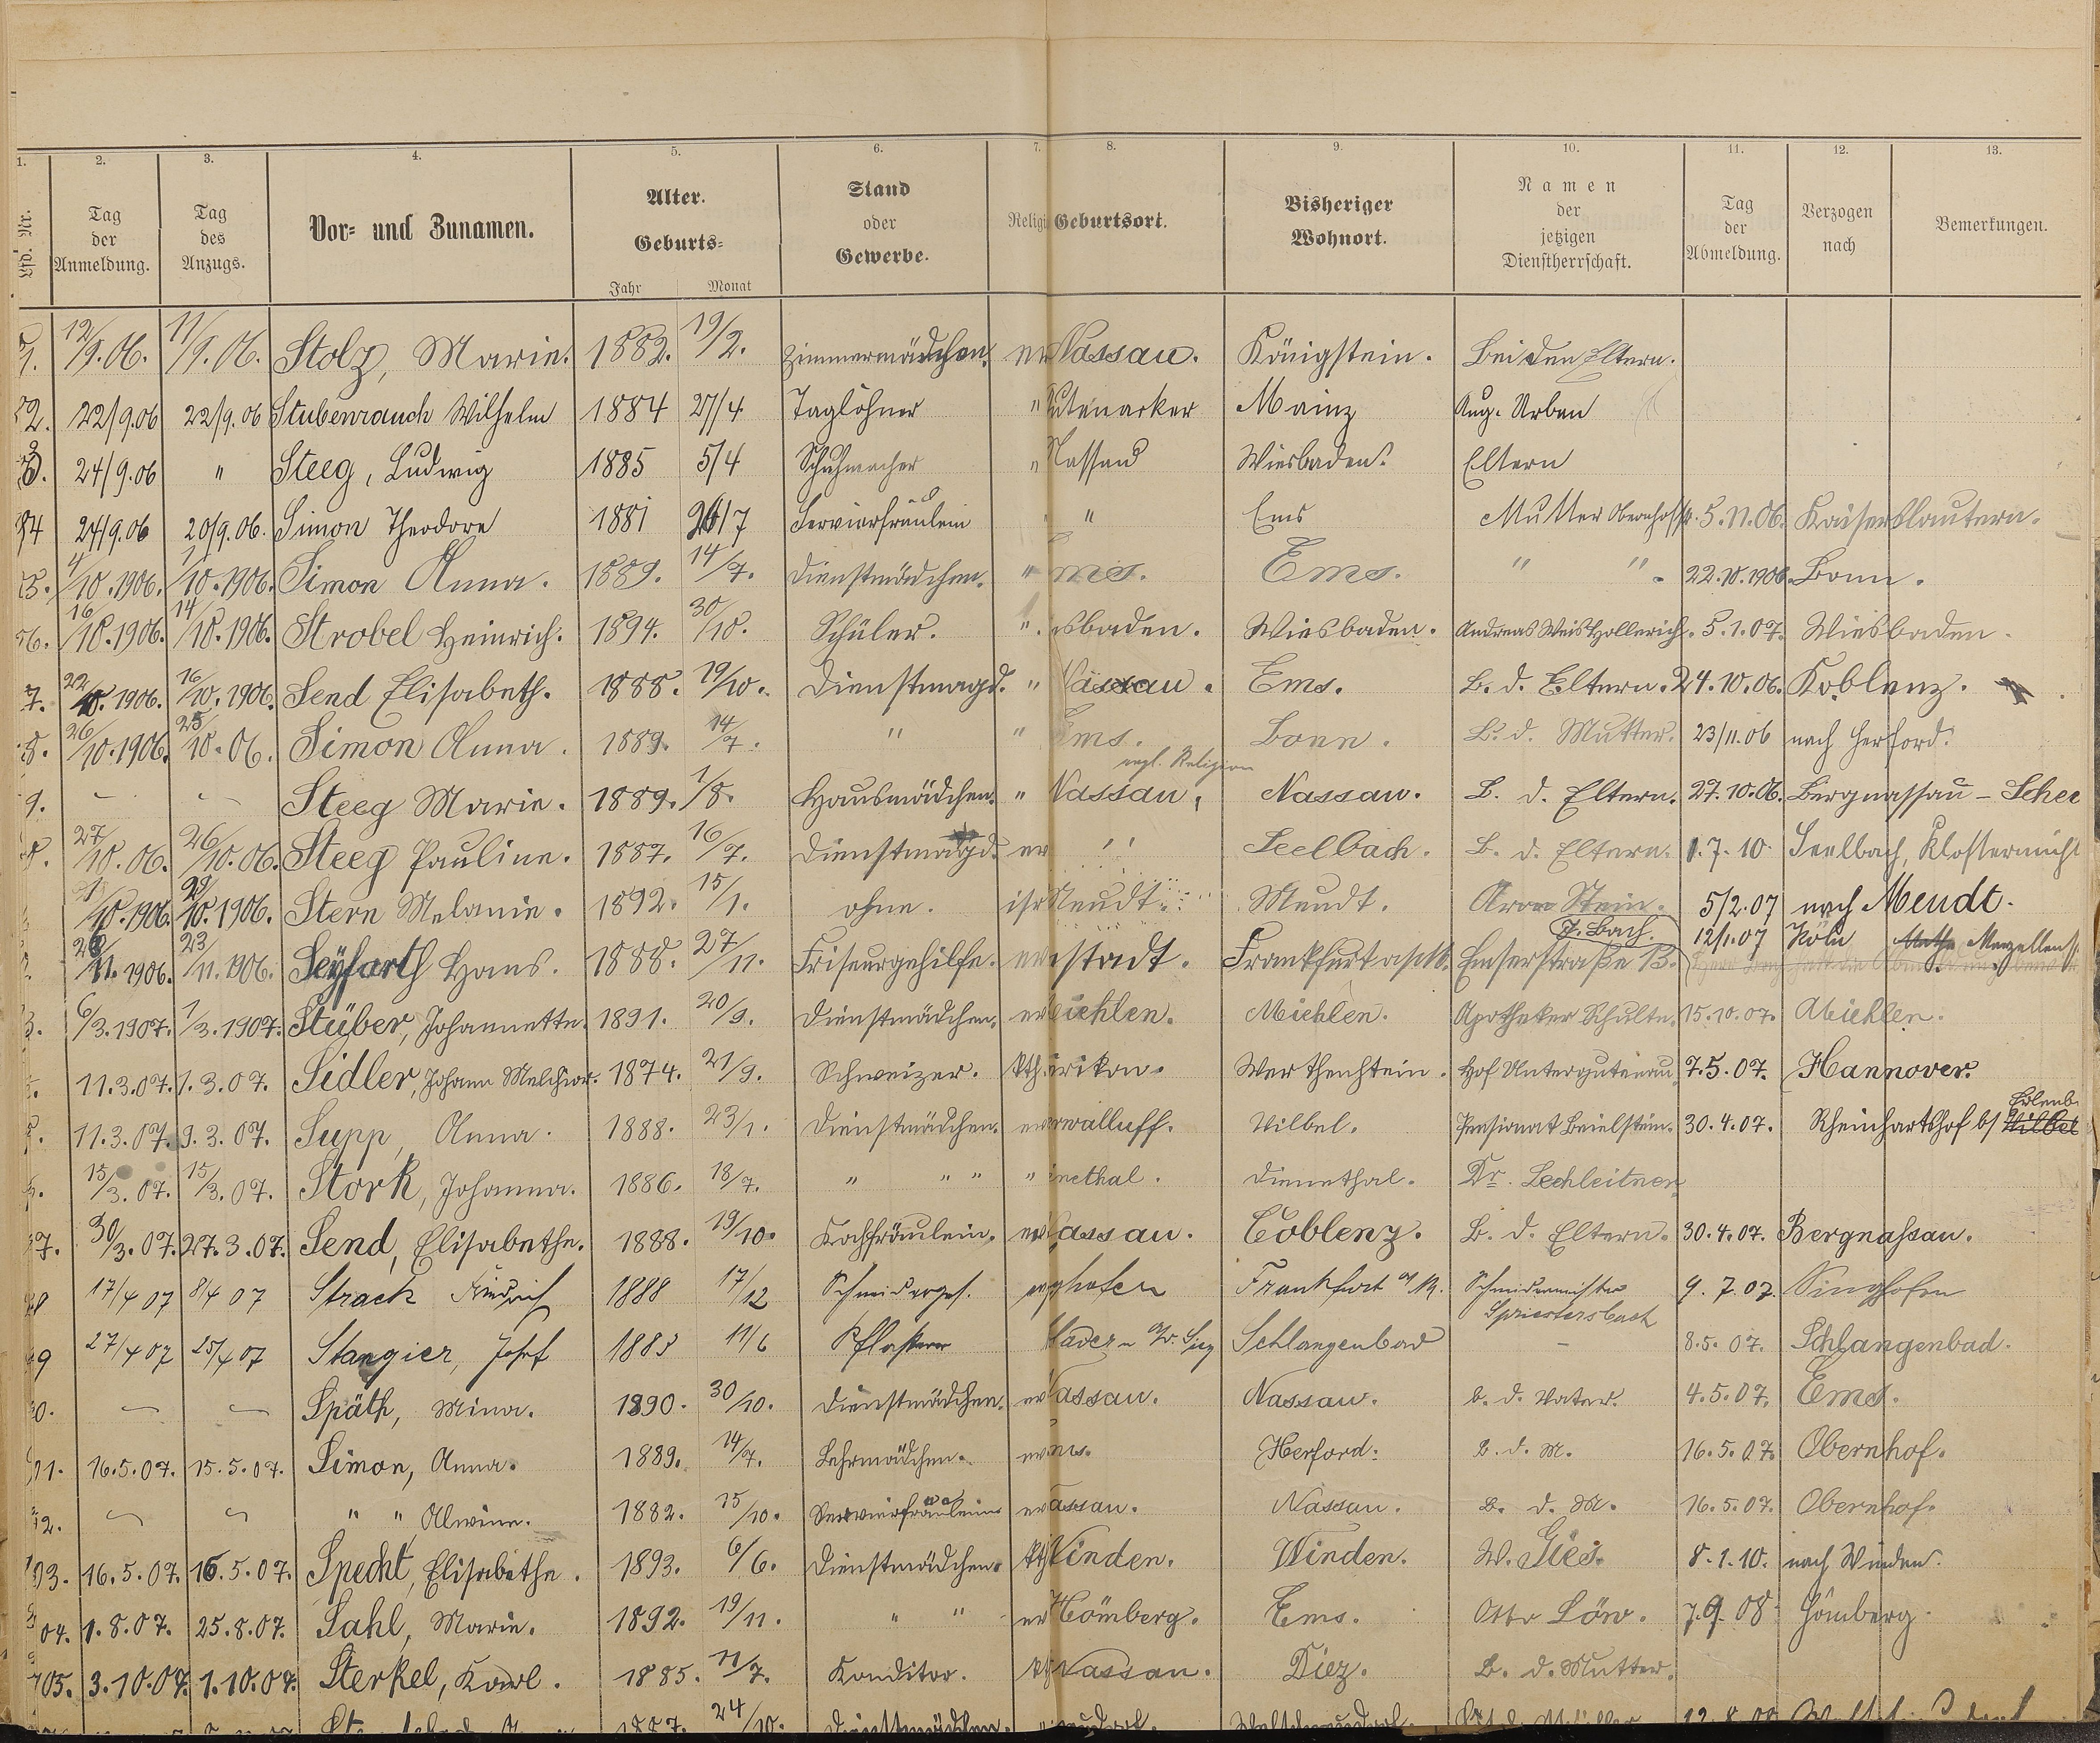 1. 2. 3. 4. 5. 6. 7. 8. 9. 10. 11. 12. 13.
Lfd. Nr. Tag der Anmeldung. Tag des Anzugs. Vor- und Zunamen. Alter. Geburts- Jahr Monat Stand oder Gewerbe. Religi Geburtsort. Bisheriger Wohnort. Namen der jetzigen Dienstherrschaft. Tag der Abmeldung. Verzogen nach Bemerkungen.
1. 12/9.06. 11/9.06. Stolz, Marie. 1882. 19/2. Zimmermädchen. ev Nassau. Königstein. Bei den Eltern.
2. 22/9.06 22/9.06 Stubenrauch Wilhelm 1884 27/4 Taglöhner " Gutenacker Mainz Aug. Urban
3. 24/9.06 " Steeg, Ludwig 1885 5/4 Schuhmacher " Nassau Wiesbaden. Eltern
4 24/9.06 20/9.06. Simon Theodore 1881 /7 Servierfräulein " " Ems Mutter 5.11.06. Kaiserslautern.
5. 4/10.1906. 1/10.1906. Simon Anna. 1889. 14/7. Dienstmädchen. " ms. Ems. " ". 22.10.1906. Bonn.
6. 16/10.1906. 14/10.1906. Strobel Heinrich. 1894. 30/10. Schüler. ". sbaden. Wiesbaden. Andreas Weis Hollerich. 5.1.07. Wiesbaden.
7. 22/10.1906. 16/10.1906. Send Elisabeth. 1888. 19/10. Dienstmagd. " Nassau. Ems. B. d. Eltern. 24.10.06. Koblenz.
8. 26/10.1906. 25/10.06. Simon Anna. 1889. 14/7. " " Ems. Bonn. B. d. Mutter. 23/11.06 nach Herford.
vgl. Religion
9. – – Steeg Marie. 1889. 1/8. Hausmädchen. " Nassau. Nassau. B. d. Eltern. 27.10.06. Bergnassau-Scheu
27/10.06. 26/10.06. Steeg Pauline. 1887. 16/7. Dienstmagd. ev " Seelbach. B. d. Eltern. 1.7.10. Seelbach, Klostermühl
/10.1906. /10.1906. Stern Melanie. 1892. 15/1. ohne. isr Meudt. Meudt. Aron Stein. 5/2.07 nach Meudt.
/11.1906. 23/11.1906. Seyfarth Hans. 1888. 27/11. Friseurgehilfe. ev stadt. Frankfurt a/M. J. Bach. Emserstraße 13. 12/1.07 Köln
3. 6/3.1907. 1/3.1907. Stüber, Johannette. 1891. 20/9. Dienstmädchen. ev iehlen. Miehlen. Apotheker Schulte. 15.10.07. Miehlen.
11.3.07. 1.3.07. Sidler, Johann Melchior. 1874. 21/9. Schweizer. kth. rikon. Werthenstein. Hof Untergutenau 7.5.07. Hannover.
11.3.07. 9.3.07. Supp, Anna. 1888. 23/1. Dienstmädchen. ev rwalluff. Vilbel. Pensionat Beielstein. 30.4.07. Rheinhartshof b/ Vilbel
15/3.07. 15/3.07. Stork, Johanna. 1886. 18/7. " " " " nethal. Dienethal. Dr. Lechleitner.
7. 30/3.07. 27.3.07. Send, Elisabethe. 1888. 19/10. Kochfräulein. ev Nassau. Coblenz. B. d. Eltern. 30.4.07. Bergnassau.
8 17/4 07 8/4 07 Strack Friedrich 1888 17/12 Schneiderges. ev ghofen Frankfurt a/M. Schneidermeister Spriestersbach 9.7.07. Singhofen
9 27/4 07 25/4 07 Stangier, Josef 1883 11/6 Pflasterer Schlangenbad – 8.5.07. Schlangenbad.
0. – – Späth, Mina. 1890. 30/10. Dienstmädchen. ev Nassau. Nassau. b. d. Vater. 4.5.07. Ems.
01. 16.5.07. 15.5.07. Simon, Anna. 1889. 14/7. Lehrmädchen. ev ms. Herford. B. d. M. 16.5.07. Obernhof.
02. – – " " Alwine. 1882. 15/10. Servierfräulein ev assau. Nassau. B. d. M. 16.5.07. Obernhof.
03. 16.5.07. 16.5.07. Specht, Elisabethe. 1893. 6/6. Dienstmädchen. kth Winden. Winden. W. Gies. 8.1.10. nach Winden.
04. 1.8.07. 25.8.07. Sahl, Marie. 1892. 19/11. " " ev Hömberg. Ems. Otto Löw. 7.9.08 Hömberg.
705. 3.10.07. 1.10.07. Sterkel, Karl. 1885. 11/7. Konditor. kth Nassau. Diez. B. d. Mutter.
1887. 24/10. Dienstmädchen.